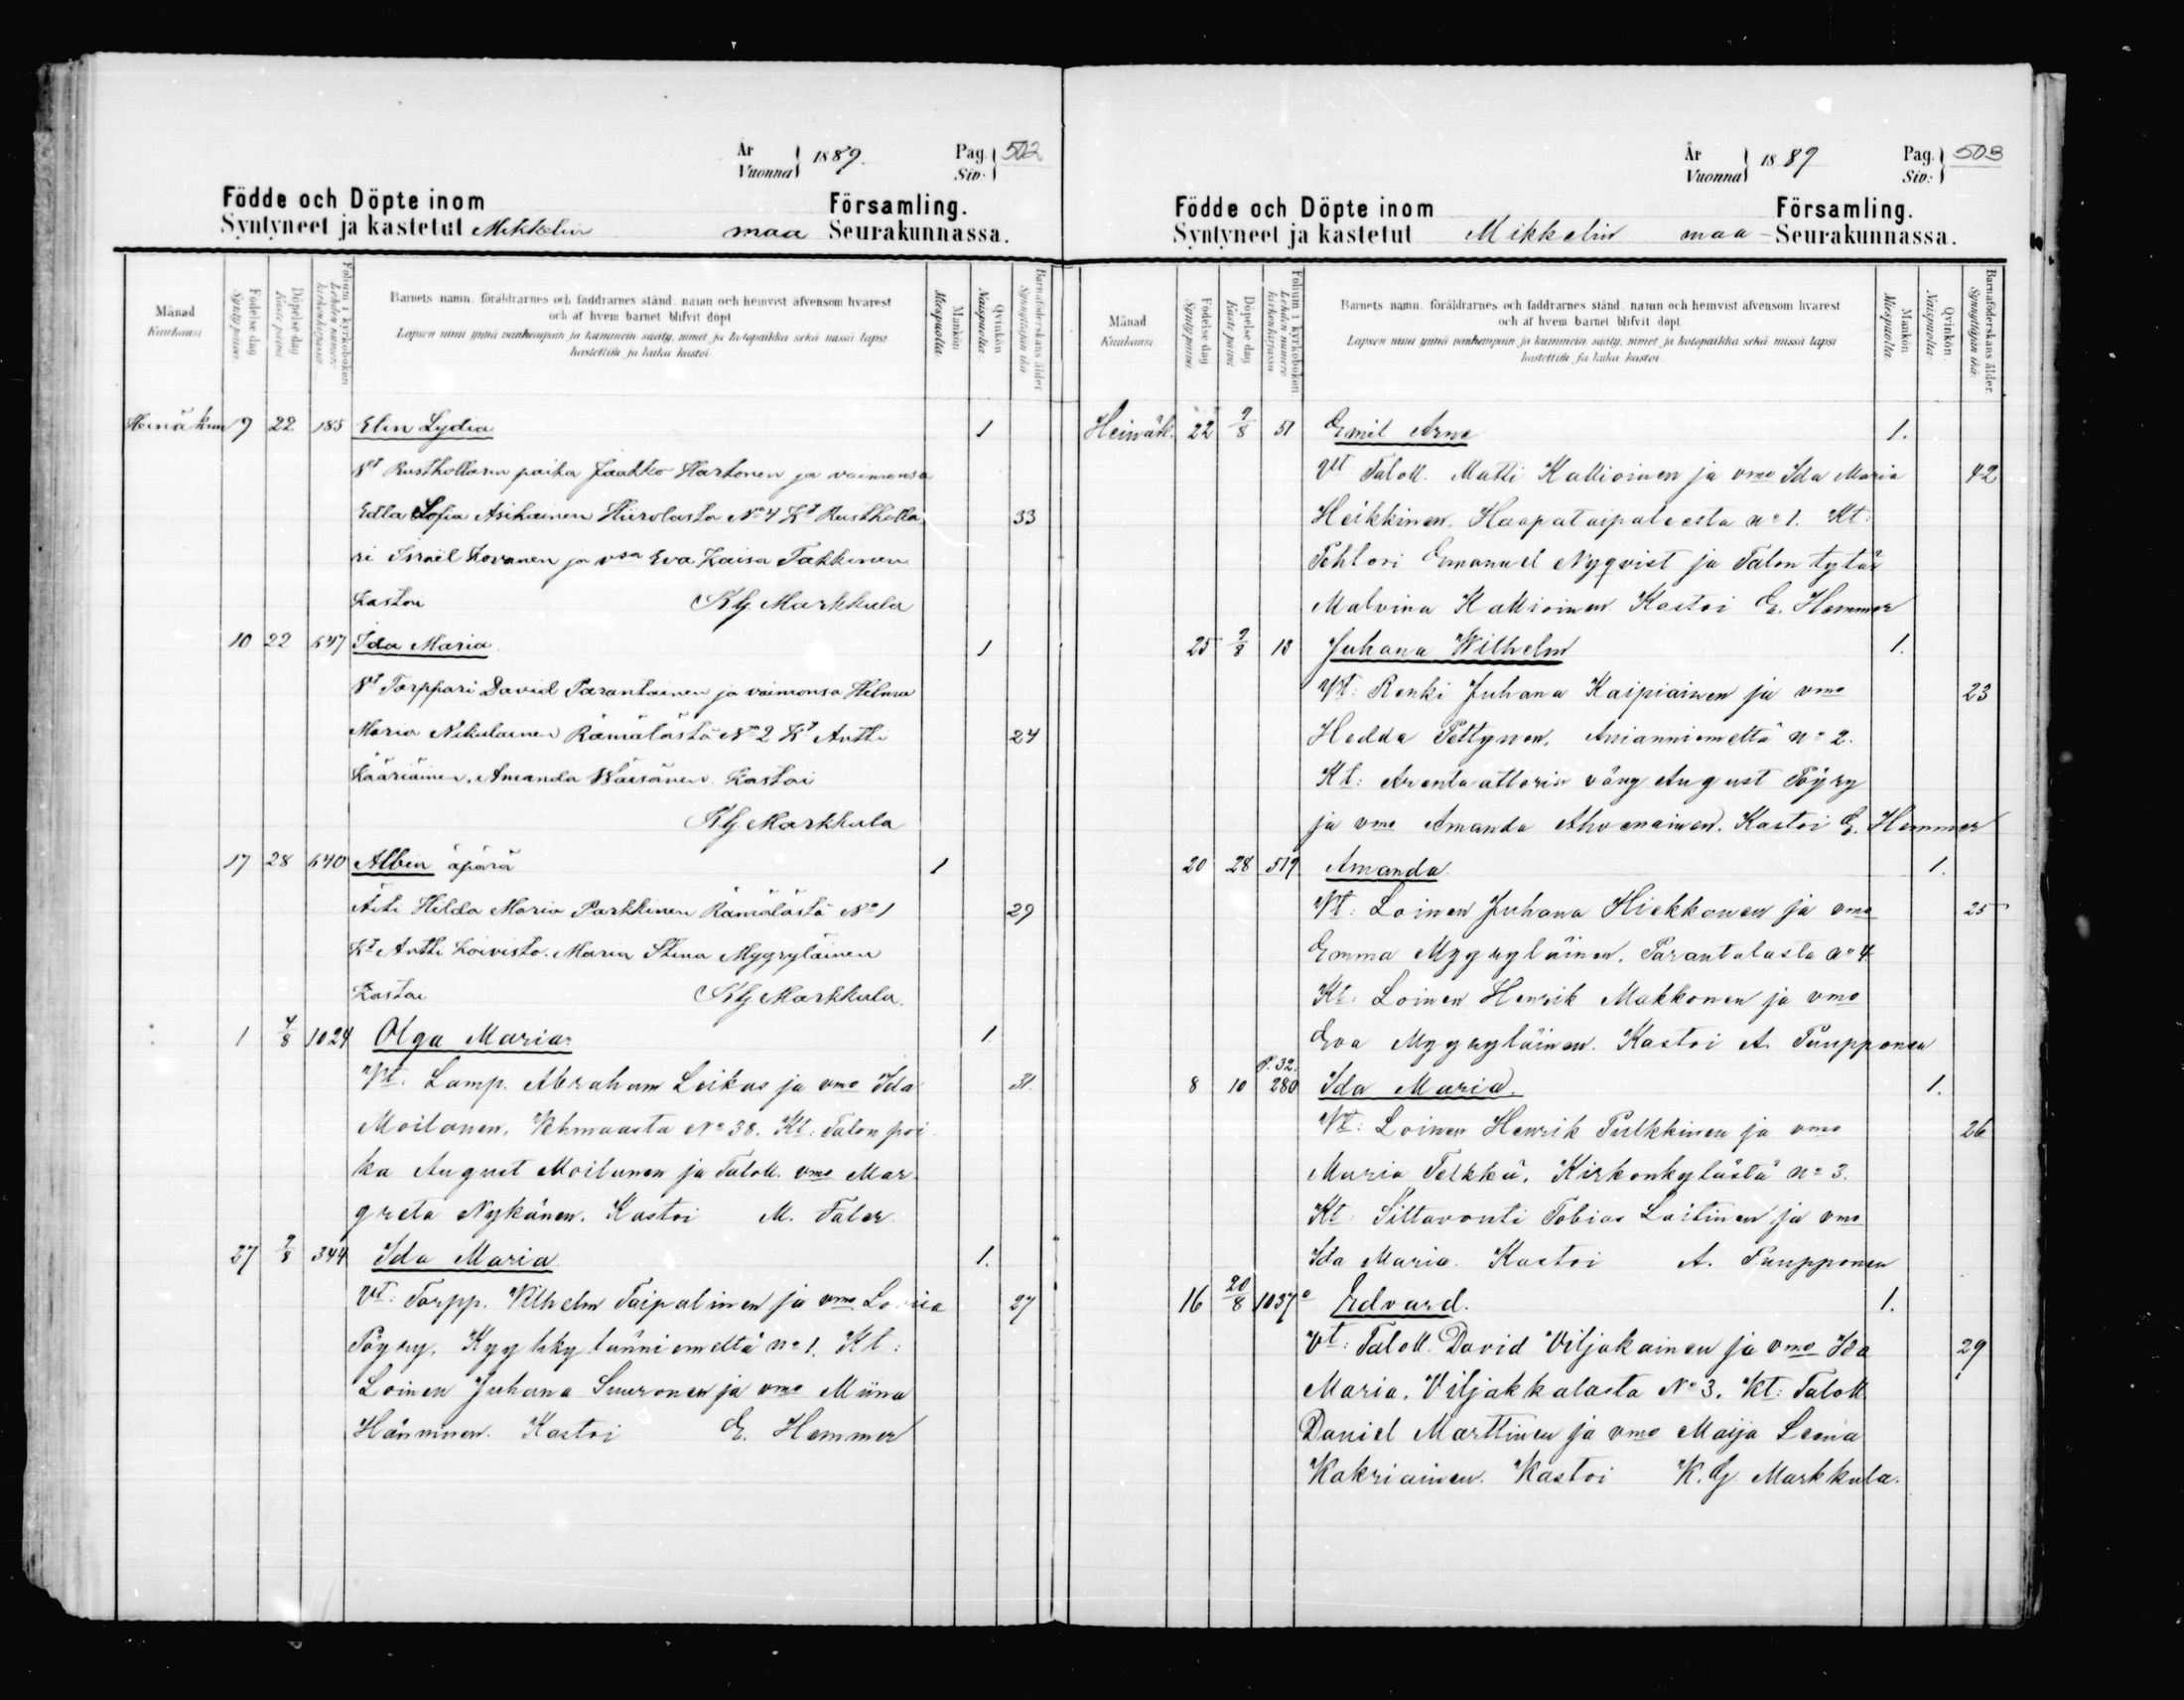 År Vuonna 1889. Pag. Siv: 502
Födde och Döpte inom Församling.
Syntyneet ja kastetut Mikkelin maa Seurakunnassa.
Månad Kuukausi
Födelse dag Synty paiwa
Döpelse dag Kaste paiwa
Folium i kyrkoboken Lehden numero kirkonkirjassa
Barnets namn, föräldrarnes och faddrarnes stånd, namn och hemvist äfvensom hvarest
och af hvem barnet blifvit döpt
Lapsen nimi ynnä vanhempain ja kummein sääty, nimet ja kotopaikka sekä missä lapsi
kastettiin ja kuka kastoi.
Mankön Miespuolia.
Qvinkön Naispuolia.
Barnaföderskans ålder Synnyttäjän ikä.
Heinäkuu 9 22 185 Elin Lydia 1
Vt Rusthollarin poika Jaakko Hartonen ja vaimonsa
Edla Sofia Asikainen Hierolasta No 4 Kt Rustholla 33
ri Israël Kovanen ja vsa Eva Kaisa Takkinen
Kastoi KG Markkula
10 22 647 Ida Maria 1
Vt Torppari David Parantainen ja vaimonsa Helma
Maria Nikulainen Rämälästä No 2 Kt Antti 24
Kääriäinen, Amanda Wäisänen. Kastoi
KG Markkula
17 28 640 Albin äpärä 1
Äiti Hilda Maria Parkkinen Rämälästä No 1 29
Kt Antti Koivisto. Maria Stina Myyryläinen
Kastoi KG Markkula.
1 4/8 1024 Olga Maria 1
Vt. Lamp. Abraham Leikas ja vmo Ida 31.
Moilanen, Vehmaasta No 38. Kt: Talon poi
ka August Moilanen ja Taloll. vmo Mar
greta Nykänen. Kastoi M. Faler
27 9/8 344 Ida Maria 1.
Vt: Torpp. Vilhelm Taipalinen ja vmo Lovisa 27
Pöyry, Kyyhkylänniemeltä no 1. Kt:
Loinen Juhana Suuronen ja vmo Miina
Hänninen. Kastoi E. Hammer
År Vuonna 1889 Pag. Siv: 503
Födde och Döpte inom Församling.
Syntyneet ja kastetut Mikkelin maa - Seurakunnassa.
Månad Kuukausi
Födelse dag Synty paiwa
Döpelse dag Kaste paiwa
Folium i kyrkoboken Lehden numero kirkonkirjassa
Barnets namn, föräldrarnes och faddrarnes stånd, namn och hemvist äfvensom hvarest
och af hvem barnet blifvit döpt
Lapsen nimi ynnä vanhempain ja kummein sääty, nimet ja kotopaikka sekä missä lapsi
kastettiin ja kuka kastoi.
Mankön Miespuolia.
Qvinkön Naispuolia.
Barnaföderskans ålder Synnyttäjän ikä.
Heinäk. 22 9/8 51 Emil Arne 1.
Vt: Taloll. Matti Kallioinen ja vmo Ida Maria 42
Heikkinen. Haapataipaleesta no 1. Kt:
Pehtori Emanuel Nyqvist ja Talon tytär
Malvina Kallioinen. Kastoi E. Hammer
25 9/8 13 Juhana Wilhelm 1.
Vt: Renki Juhana Kaipiainen ja vmo 23
Hedda Pettynen, Anianniemeltä no 2.
Kt: Arentaattorin vävy August Pöyry
ja vmo Amanda Ahvenainen. Kastoi E. Hammer
20 28 519 Amanda. 1.
Vt: Loinen Juhana Hiekkonen ja vmo 25
Emma Myyryläinen, Parantalasta no 4.
Kt: Loinen Henrik Makkonen ja vmo
Eva Myyryläinen. Kastoi A. Puupponen
P. 32.
8 10 280 Ida Maria. 1.
Vt: Loinen Henrik Pulkkinen ja vmo 26
Maria Telkkä, Kirkonkylästä no 3.
Kt: Siltavouti Tobias Laitinen ja vmo
Ida Maria. Kastoi A. Puupponen
16 20/8 1037 Edvard. 1.
Vt: Taloll. David Viljakainen ja vmo Ida 29
Maria, Viljakkalasta No 3. Kt: Taloll
Daniel Marttinen ja vmo Maija Leena
Kakriainen. Kastoi K. G. Markkula.